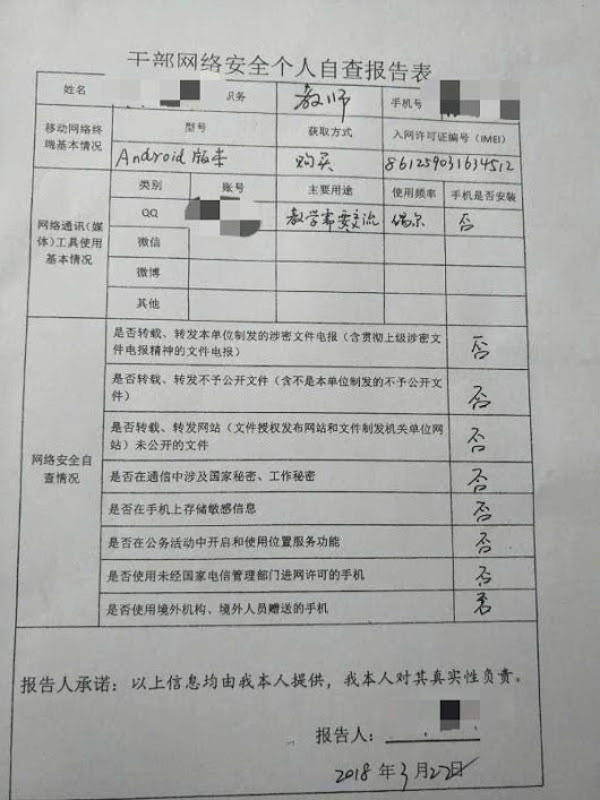 干部网络安全个人自查报告表
姓名 职务 教师 手机号
移动网络终端基本情况 型号 获取方式 入网许可证编号（IMEI）
Android 版本 购买 861259031634512
网络通讯（媒体）工具使用基本情况 类别 账号 主要用途 使用频率 手机是否安装
QQ 教学需要交流 偶尔 否
微信
微博
其他
网络安全自查情况
是否转载、转发本单位制发的涉密文件电报（含贯彻上级涉密文
件电报精神的文件电报） 否
是否转载、转发不予公开文件（含不是本单位制发的不予公开文
件） 否
是否转载、转发网站（文件授权发布网站和文件制发机关单位网
站）未公开的文件 否
是否在通信中涉及国家秘密、工作秘密 否
是否在手机上存储敏感信息 否
是否在公务活动中开启和使用位置服务功能 否
是否使用未经国家电信管理部门进网许可的手机 否
是否使用境外机构、境外人员赠送的手机 否
报告人承诺：以上信息均由我本人提供，我本人对其真实性负责。
报告人：
2018 年 3 月 22日